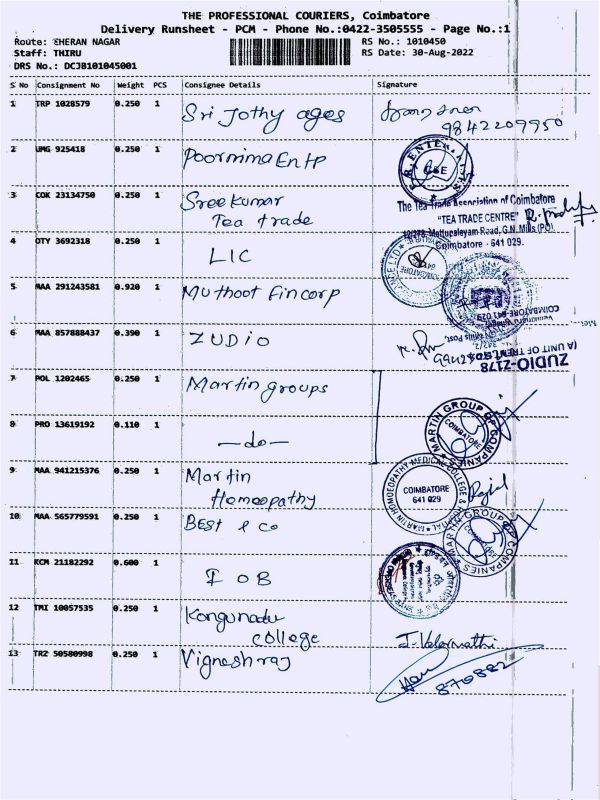 THE PROFESSIONAL COURIERS, Coimbatore
Delivery Runsheet - PCM - Phone No.:0422-3505555 - Page No.:1
Route: CHERAN NAGAR
RS No.: 1010450
Staff: THIRU
RS Date: 30-Aug-2022
DRS No.: DCJB101045001
S No Consignment No Weight PCS Consignee Details Signature
1 TRP 1028579 0.250 1 Sri Jothy ages
9842209950
2 UMG 925418 0.250 1 Poornima Entp
3 COK 23134750 0.250 1 Sree kumar
Tea trade
The Tea Trade Association of Coimbatore
"TEA TRADE CENTRE"
Mettupalayam Road, G.N. Mills (PO)
Coimbatore - 641 029.
4 OTY 3692318 0.250 1 LIC
5 MAA 291243581 0.920 1 Muthoot Fincorp
COIMBATORE 641 029
6 MAA 857888437 0.390 1 ZUDIO
(A UNIT OF TRENT
ZUDIO-2178
7 POL 1202465 0.250 1 Martin groups
8 PRO 13619192 0.110 1 -do-
MARTIN GROUP OF COMPANIES
COIMBATORE
9 MAA 941215376 0.250 1 Martin
Homeopathy
MARTIN HOMOEOPATHY MEDICAL COLLEGE & HOSPITAL
COIMBATORE
641 029
10 MAA 565779591 0.250 1 Best & Co
MARTIN GROUP OF COMPANIES
COIMBATORE
11 KCM 21182292 0.600 1 IOB
12 TMI 10057535 0.250 1 Kongunadu
college
J. Valarmathi
13 TRZ 50580998 0.250 1 Vigneshraj
870882